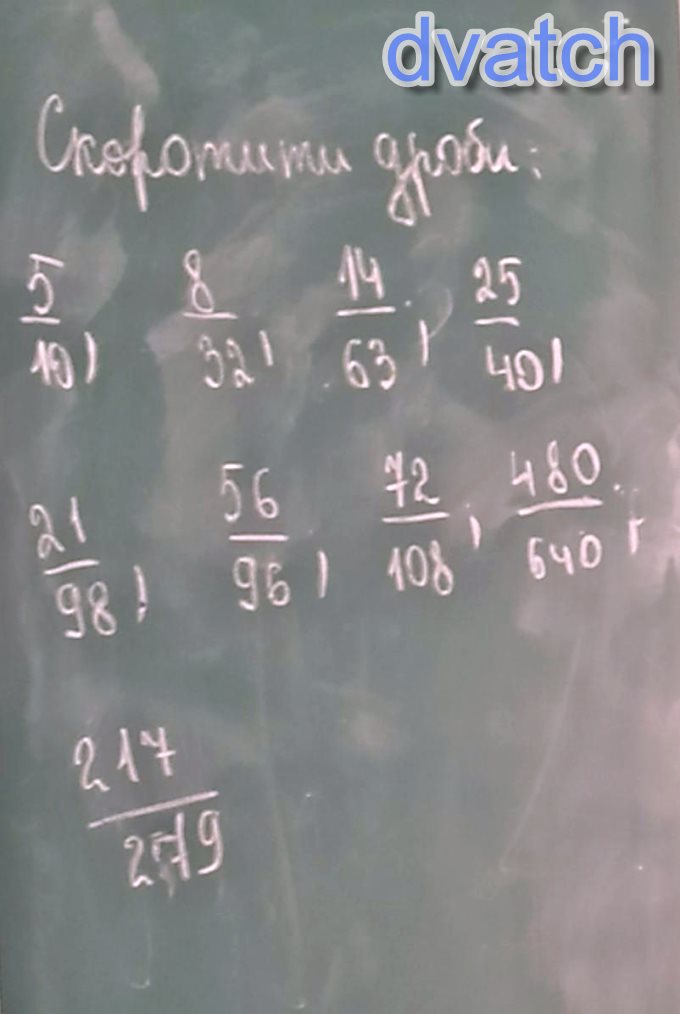 dvatch
Скоротити дроби:
5/10, 8/32, 14/63, 25/40,
21/98, 56/96, 72/108, 480/640,
217/279